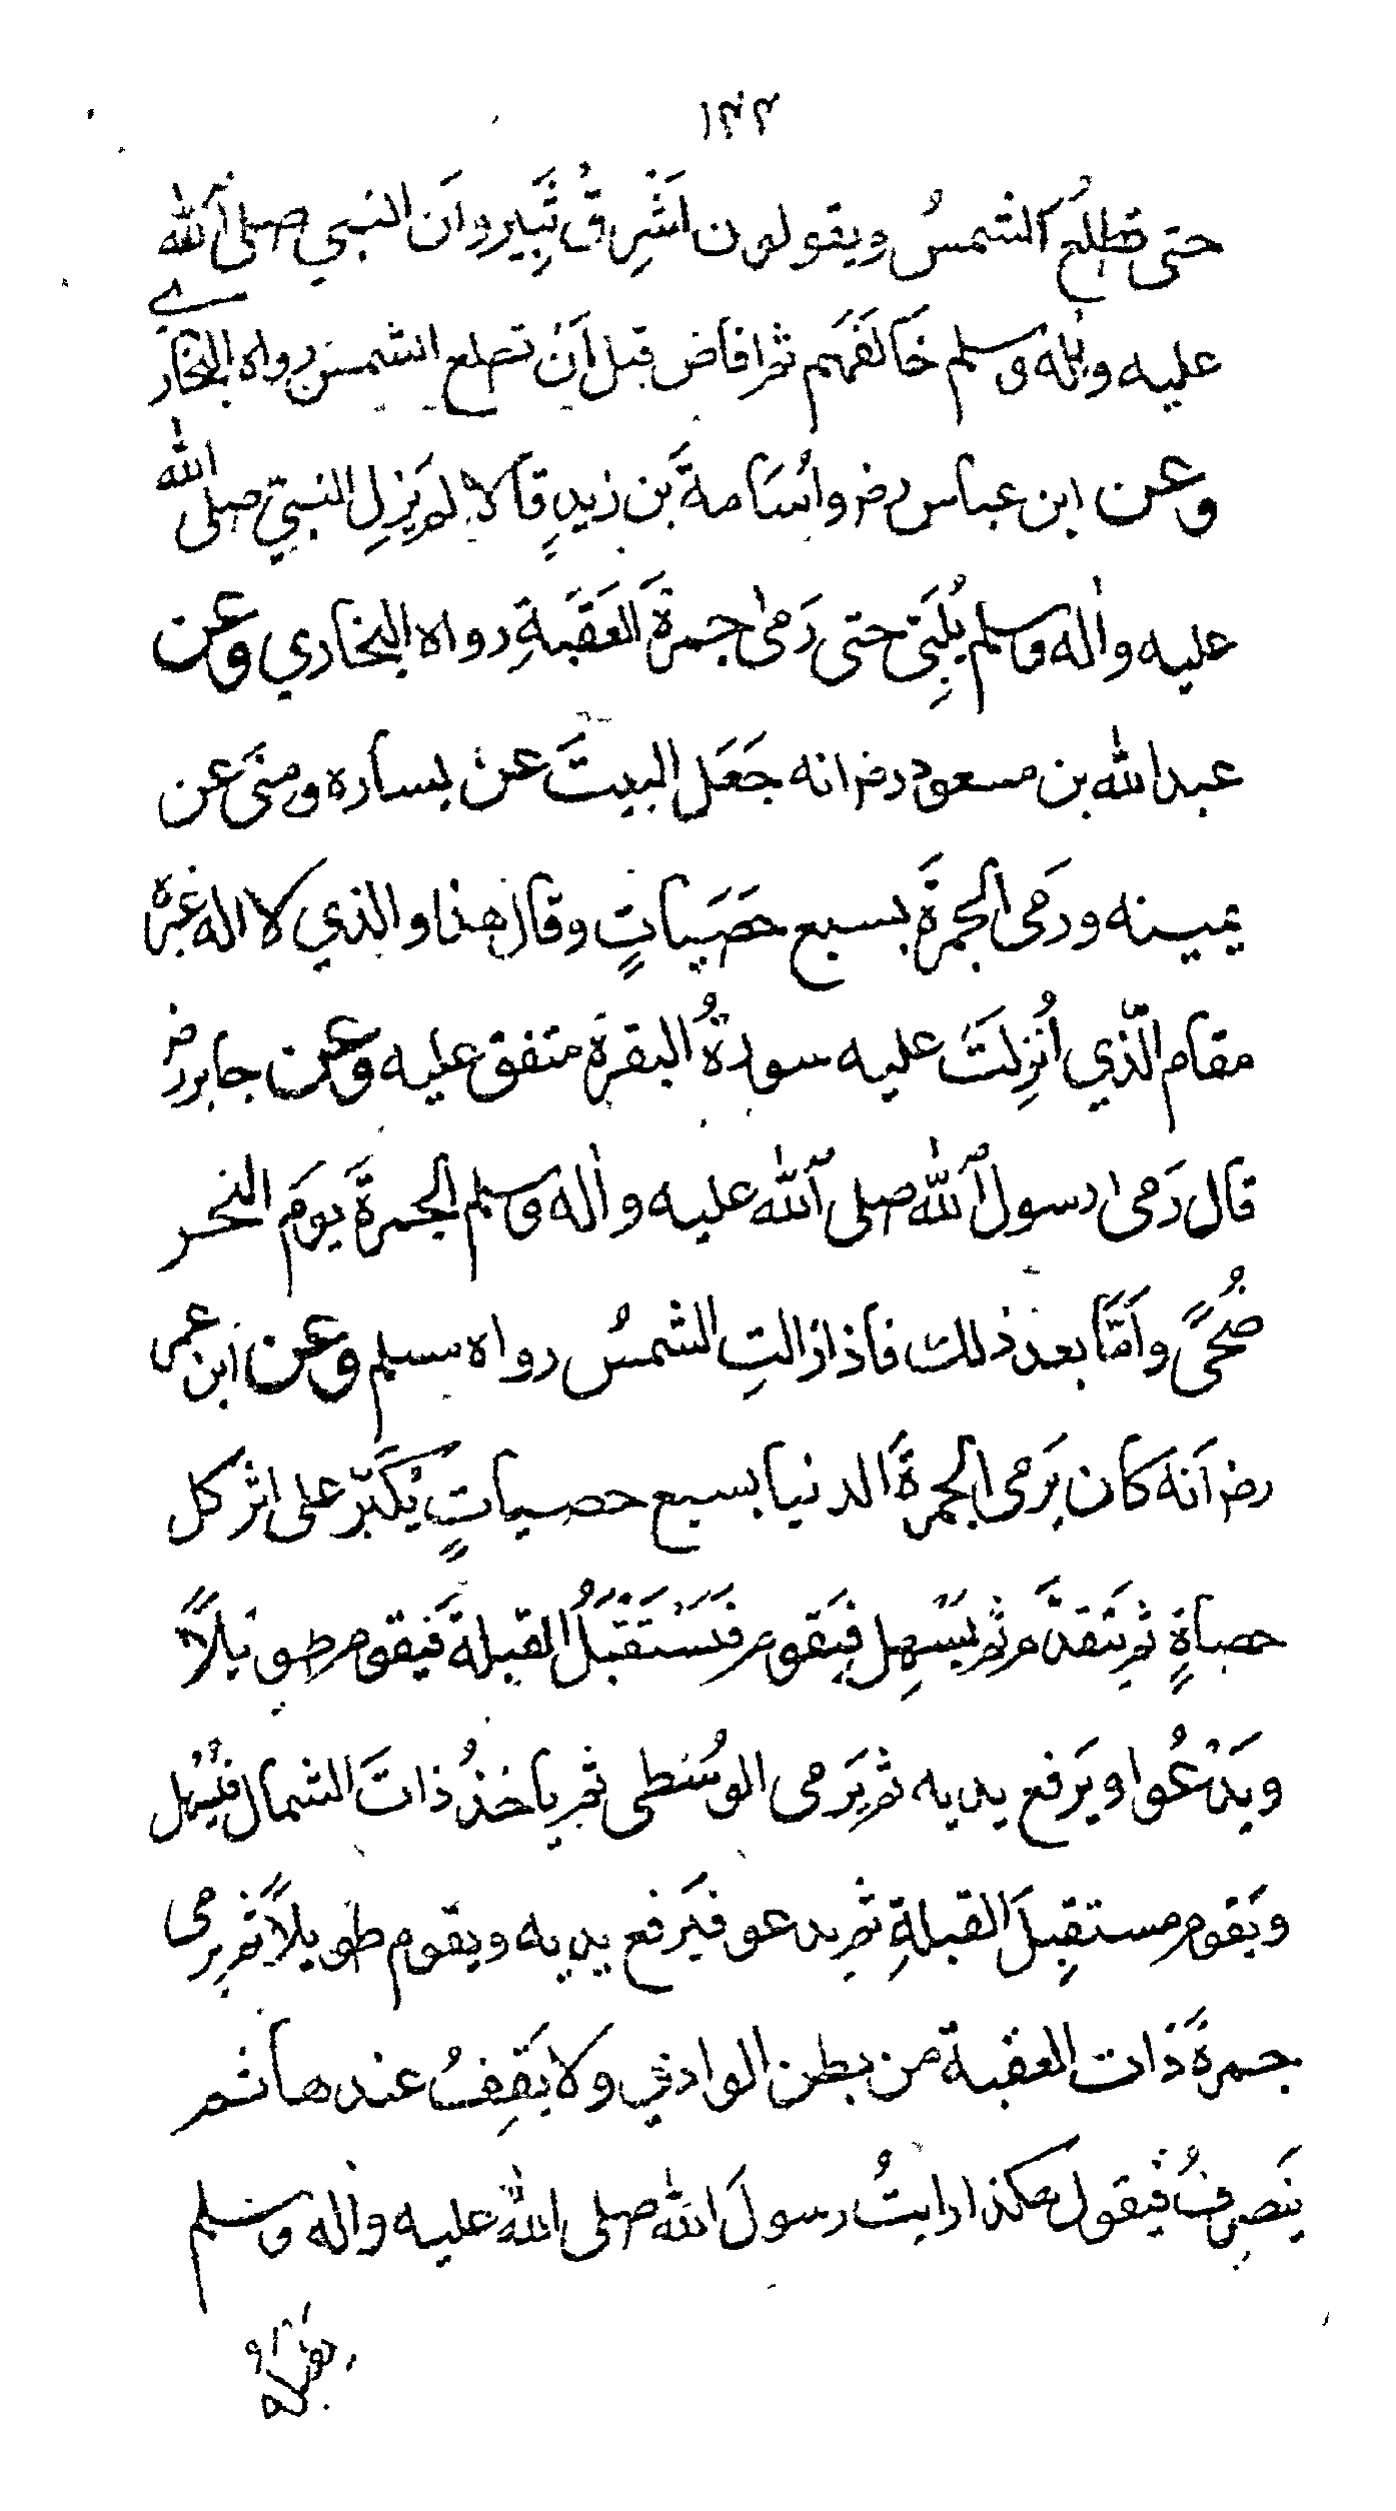 حتى تطلعُ الشمسُ ويقولون اَشْرِقْ ثَبِير واَن النبي صلى الله
عليه واٰله وسلم خَالَفَهَم ثم افاض قبل اَن تطلع الشمس رواه البخاري
وعن ابن عباس رض واُسَامةَ بن زيدٍ قالا لم يَزلِ النبيّ صلى الله
عليه واٰله وسلم يُلَبِّي حتى رَمىٰ جمرةَ العَقَبةِ رواه البخاري وعن
عبد الله بن مسعود رض انه جَعَل البيتَ عن يساره ومنىً عن
يمينه ورَمى الجمرةَ بسبع حَصَياتٍ وقال هذا والذي لا اله غيره
مقام الّذي اُنزِلَتْ عليه سورةُ البقرة متفق عليه وعن جابر رض
قال رَمىٰ رسول الله صلى الله عليه واٰله وسلم الجمرةَ يومَ النحر
ضُحىً واَمّا بعد ذلك فاذا زالتِ الشمسُ رواه مسلم وعن ابن عمر
رض اَنه كان يَرمى الجمرةَ الدنيا بسبع حصياتٍ يُكَبّر على اثر كل
حصاةٍ ثم يَتَقدَّم ثم يُسْهِل فيَقوم فَيَسْتَقْبَلُ القبلةَ فيَقوم طويلاً
ويَدْعُوا ويَرفع يديه ثم يَرمى الوُسْطى ثم ياخذُ ذاتَ الشمال فيُسْهل
ويَقوم مستقبِلَ القبلةِ ثم يدعو فيَرفع يديه ويقوم طويلاً ثم يرمى
جمرةَ ذات العقبة من بطن الوادي ولا يَقِفُ عندها ثم
يَنصرِفُ فيقول هكذا رايتُ رسولَ الله صلى الله عليه واٰله وسلم